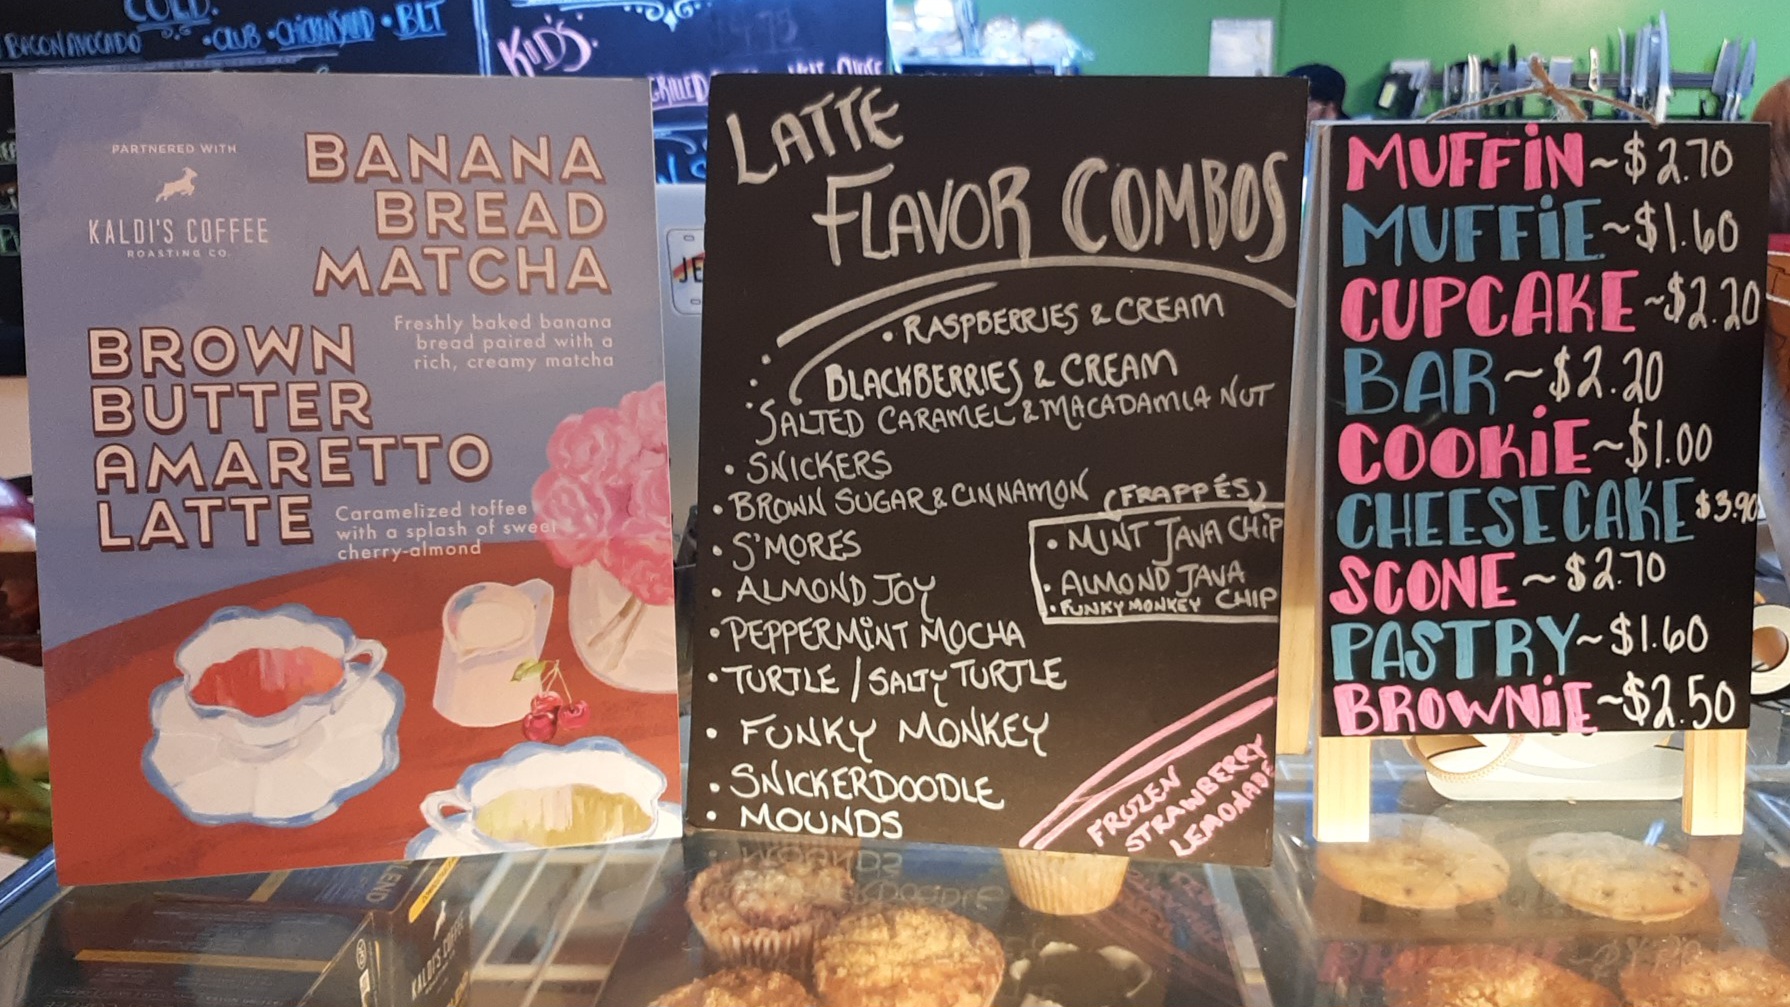 COLD.
BACON AVOCADO • CLUB • CHICKEN SALAD • BLT
KID'S
GRILLED
PARTNERED WITH
KALDI'S COFFEE
ROASTING CO.
BANANA
BREAD
MATCHA
Freshly baked banana
bread paired with a
rich, creamy matcha
BROWN
BUTTER
AMARETTO
LATTE
Caramelized toffee
with a splash of sweet
cherry-almond
LATTE
FLAVOR COMBOS
• RASPBERRIES & CREAM
BLACKBERRIES & CREAM
SALTED CARAMEL & MACADAMIA NUT
• SNICKERS
• BROWN SUGAR & CINNAMON
• S'MORES
• ALMOND JOY
• PEPPERMINT MOCHA
• TURTLE / SALTY TURTLE
• FUNKY MONKEY
• SNICKERDOODLE
• MOUNDS
(FRAPPÉS)
• MINT JAVA CHIP
• ALMOND JAVA
CHIP
• FUNKY MONKEY
FROZEN
STRAWBERRY
LEMONADE
MUFFIN ~ $2.70
MUFFIE ~ $1.60
CUPCAKE ~ $2.20
BAR ~ $2.20
COOKIE ~ $1.00
CHEESECAKE $3.90
SCONE ~ $2.70
PASTRY ~ $1.60
BROWNIE ~ $2.50
KALDI'S COFFEE